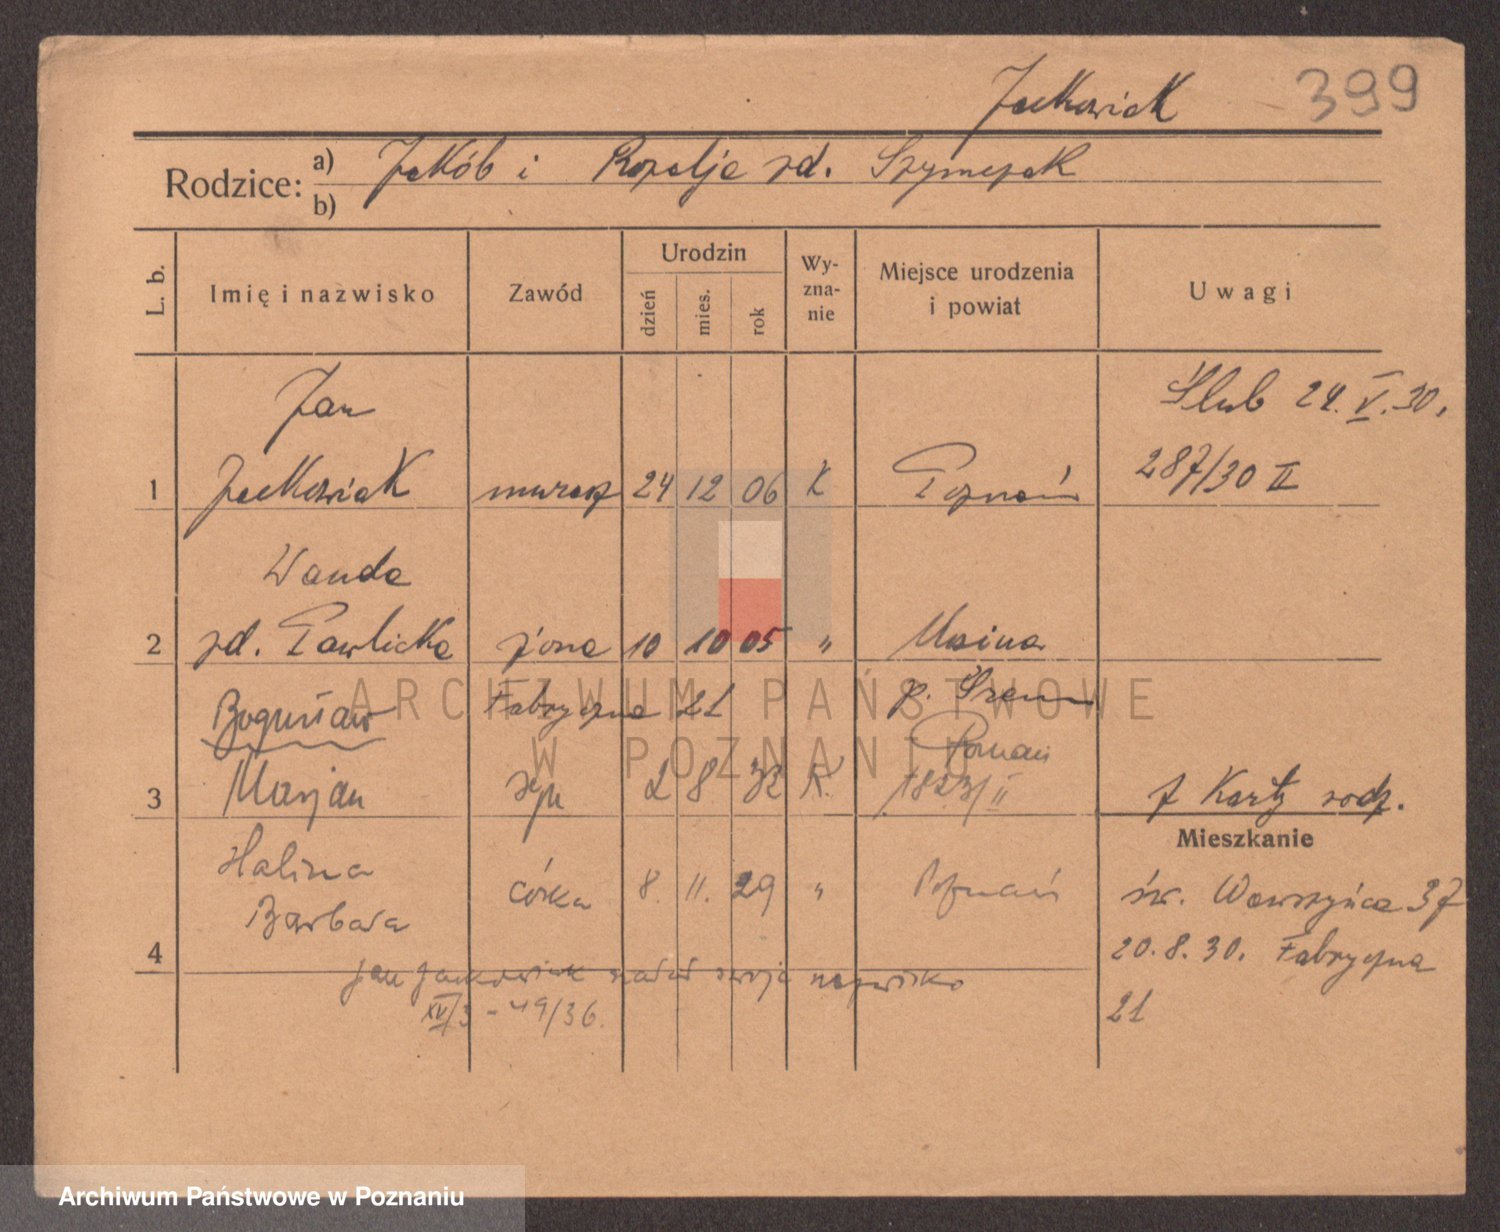 Jackowiak 399
Rodzice: a) Jakób i Rozalja zd. Szymczak
b)
L. b. Imię i nazwisko Zawód Urodzin dzień mies. rok Wy-zna-nie Miejsce urodzenia i powiat Uwagi
Jan Ślub 24. V. 30.
1 Jackowiak murarz 24 12 06 K Poznań 287/30 II
Wanda
2 zd. Pawlicka żona 10 10 05 " Mosina
Bogusław Fabryczna 21 p. Śrem
Poznań
3 Marjan syn 2 8 32 K. 1823/II z Karty rodz.
Mieszkanie
Halina córka 8. 11. 29 " Poznań św. Wawrzyńca 37
Barbara 20.8.30. Fabryczna
4
Jan Jankowiak swoje nazwisko
XV/3 - 49/36. 21
ARCHIWUM PAŃSTWOWE
W POZNANIU
Archiwum Państwowe w Poznaniu